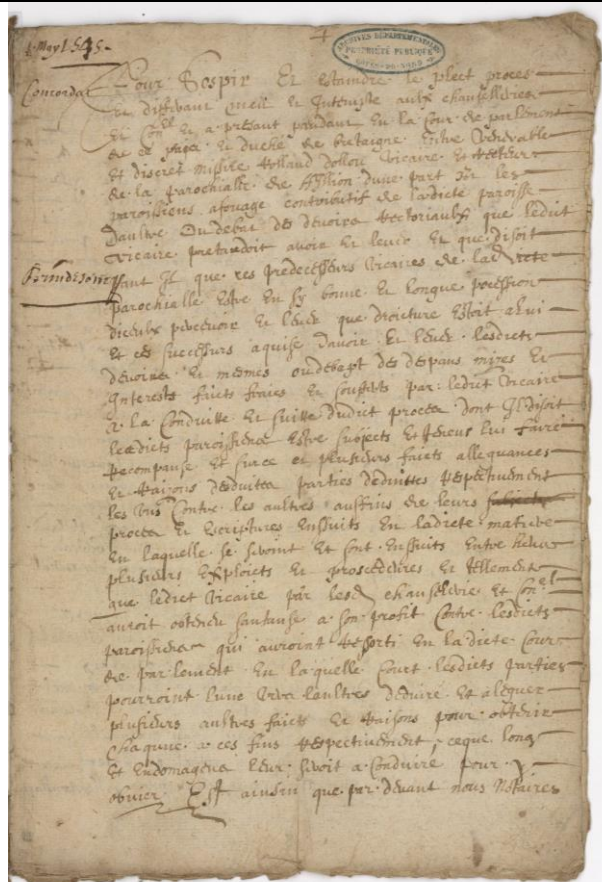 4
4 May 1545
ARCHIVES DÉPARTEMENTALES
PROPRIÉTÉ PUBLIQUE
CÔTES-DU-NORD
Concordat
Pour Sospir Et estaindre le plect proces
Et differant meu Et Intenuste aulx chancelleries
Et Et a presant pandant En la Cour de parlement
de ce pays Et duché de bretaigne Entre Venerable
Et discret missire Rolland dollou Vicaire Et Recteur
de la parochialle de Hyllion dune part Et les
paroissiens afouage contributif de ladicte paroisse
daultre Ou debat des devoirs Rectoriaulx que ledict
Vicaire pretandoit avoir Et leuer Et que disoit
tant Il que ces predecesseurs Vicaires de ladicte
parochialle Estre En sy bonne Et longue poession
diceulx percevoir Et leuer que droicture Estoit a lui
Et ces successeurs aquise davoir Et leuer lesdicts
devoirs Et mesmes ou debapt des despans mises Et
Interests faicts fraies Et soufferts par ledict Vicaire
a la Conduitte Et suitte dudict proces dont Il disoit
lesdicts paroissiens Estre subiects Et tenus lui faire
Recompanse Et surce et plusieurs faicts allegances
Et Raisons deduites parties Respectivement
les Uns Contre les aultres aussins de leurs
proces Et Escriptures Ensuits En ladicte matiere
En laquelle se seroint Et sont Ensuits Entre
plusieurs Exploicts Et procedeures Et tellement
que ledict Vicaire par lesd chancelerie Et
auroit obtenu santanse a son profit Contre lesdicts
paroissiens qui auroint Ressorti En la dicte Cour
de parlement En la quelle Court lesdicts parties
pourroint lune Vers laultres deduire Et aleguer
plusieurs aultres faicts Et Raisons pour obtenir
chaqune a ces fins Respectivement, ceque long
Et Endomageux leur seroit a Conduire pour y
obvier Est ainsin que par devant nous Notaires